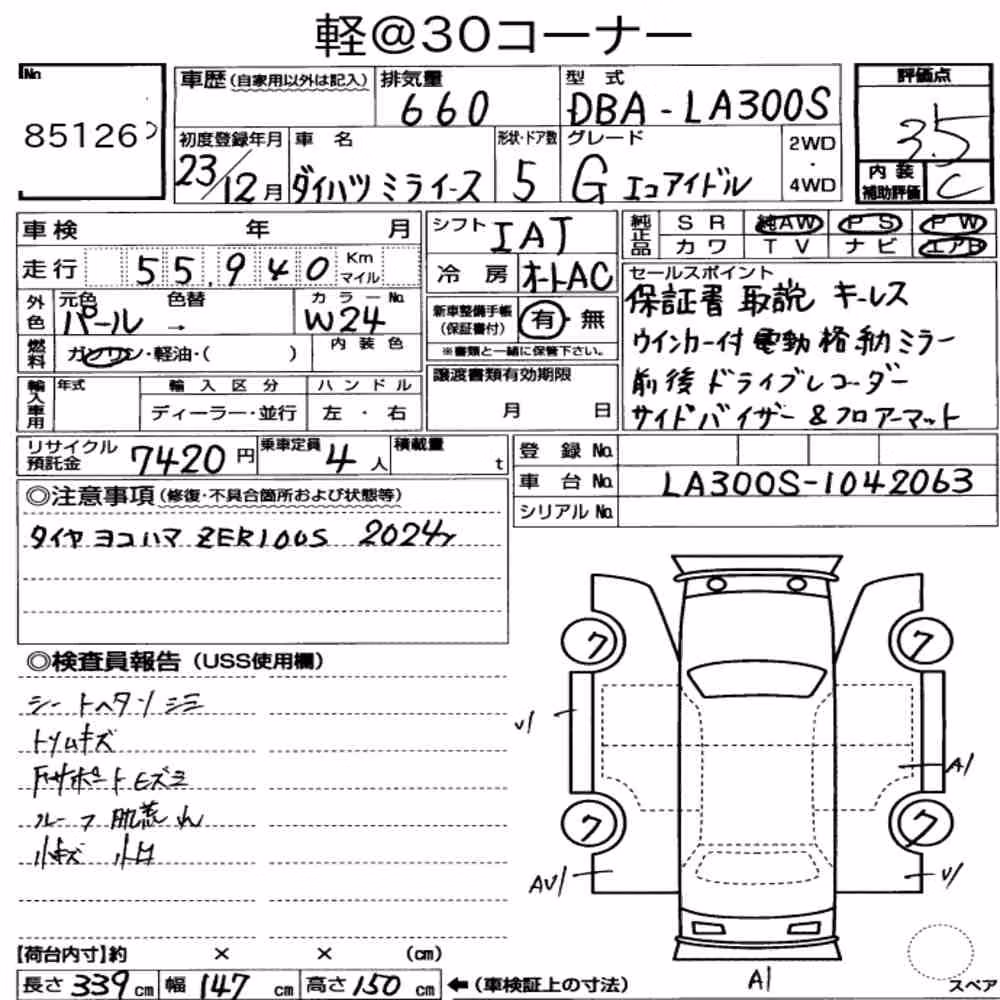 軽@30コーナー
No.
85126
車歴(自家用以外は記入)
排気量
660
型式
DBA-LA300S
評価点
3.5
初度登録年月
23/12月
車名
ダイハツ ミライース
形状・ドア数
5
グレード
G エコアイドル
2WD
・
4WD
内装
補助評価
C
車検 年 月
走行 55,940 Km
マイル
シフト IAT
冷房 オートAC
純正品
SR 純AW PS PW
カワ TV ナビ エアB
外色
元色 色替
パール →
カラーNo.
W24
燃料
ガソリン・軽油・( )
内装色
新車整備手帳
(保証書付)
有・無
※書類と一緒に保管下さい。
セールスポイント
保証書 取説 キーレス
ウインカー付 電動格納ミラー
前後ドライブレコーダー
サイドバイザー & フロアーマット
輸入車用
年式
輸入区分
ディーラー・並行
ハンドル
左・右
譲渡書類有効期限
月 日
リサイクル
預託金
7420円
乗車定員
4人
積載量
t
登録No.
車台No. LA300S-1042063
シリアルNo.
◎注意事項(修復・不具合箇所および状態等)
タイヤ ヨコハマ ZER100S 2024y
◎検査員報告(USS使用欄)
シートヘタリシミ
トリムキズ
Fサポートヒズミ
ルーフ肌荒れ
小キズ 小凹
ク
ク
V1
A1
ク
ク
AV1
V1
A1
スペア
【荷台内寸】約 × × (cm)
長さ339cm 幅147cm 高さ150cm ←(車検証上の寸法)